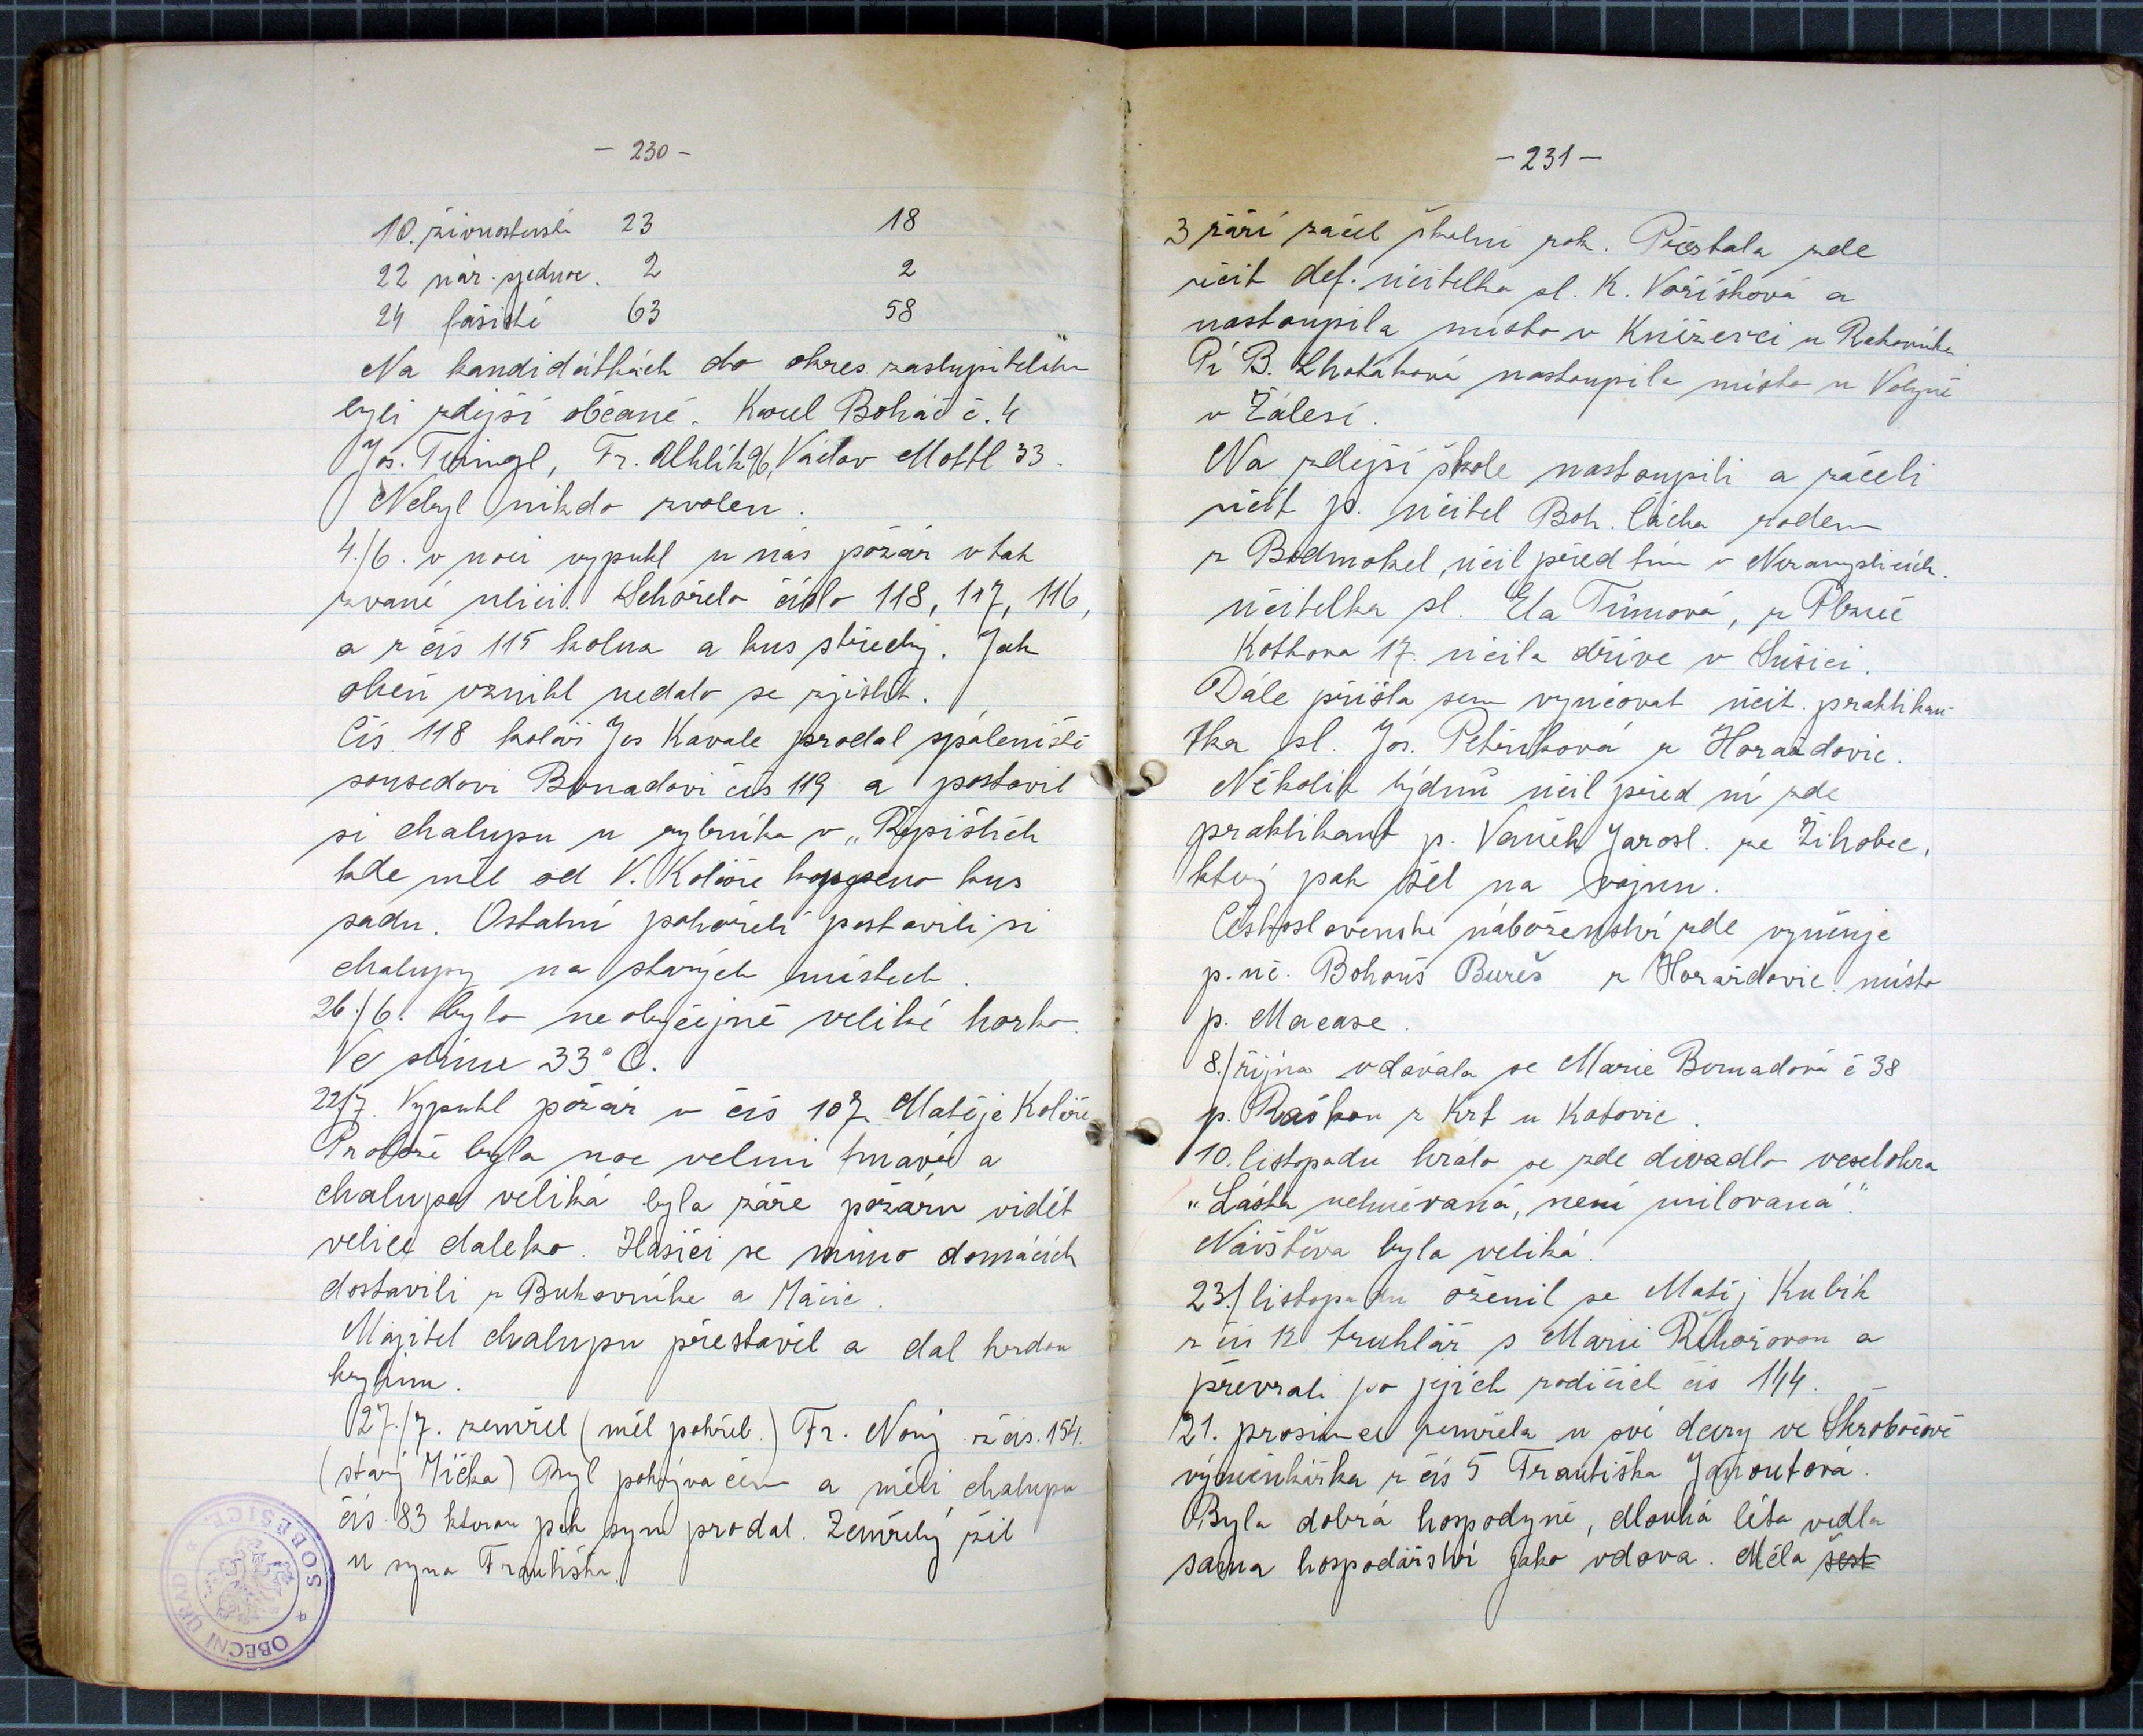 - 230 -
10. živnostenská 23 18
22 nár. sjednoc. 2 2
24 fašisté 63 58
Na kandidátkách do okres. zastupitelstva
byli zdejší občané. Karel Boháč č. 4
Jos. Tuingl, Fr. Uhlík 96, Václav Mottl 33.
Nebyl nikdo zvolen.
4./6. v noci vypukl u nás požár v tak
zvané ulici. Schořela čísla 118, 117, 116,
a z čís 115 kolna a kus střechy. Jak
oheň vznikl nedalo se zjistit.
Čís. 118 kolář Jos Kavale prodal spáleniště
sousedovi Brnadovi čís 119 a postavil
si chalupu u rybníka v „Řepištích
kde měl od V. Koláře koupeno kus
sadu. Ostatní pohořelí postavili si
chalupy na starých místech.
26./6. bylo neobyčejně veliké horko.
Ve stínu 33° C.
22/7. Vypukl požár v čís 107 Matěje Koláře
Protože byla noc velmi tmavá a
chalupa veliká byla záře požáru vidět
velice daleko. Hasiči se mimo domácích
dostavili z Bukovníka a Máčic.
Majitel chalupu přestavěl a dal tvrdou
krytinu.
27./7. zemřel (měl pohřeb.) Fr. Nový z čís. 154.
(starý Jíčka) Byl pokrývačem a měli chalupu
čís. 83 kterou pak syn prodal. Zemřelý žil
u syna Františka.
OBECNÍ ÚŘAD SOBĚŠICE
- 231 -
3 září začal školní rok. Přestala zde
učit def. učitelka sl. K. Voříšková a
nastoupila místo v Kněževci u Rakovníka
Pí B. Lhotáková nastoupila místo u Volyně
v Zálesí.
Na zdejší škole nastoupili a začali
učit p. učitel Boh. Cácha rodem
z Bodmokel, učil před tím v Nezamyslicích.
učitelka sl. Ela Tůmová, z Plzně
Kotkova 17. učila dříve v Sušici.
Dále přišla sem vyučovat učit. praktikan-
tka sl. Jos. Petříková z Horažďovic.
Několik týdnů učil před ní zde
praktikant p. Vaněk Jarosl. ze Žihobec,
který pak šel na vojnu.
Československé náboženství zde vyučuje
p. uč. Bohouš Bureš z Horažďovic. místo
p. Macase.
8./října vdávala se Marie Brnadová č 38
p. Raškou z Krt u Katovic.
10. listopadu hrálo se zde divadlo veselohra
„Láska nehněvaná, není milovaná".
Návštěva byla veliká.
23./listopadu oženil se Matěj Kubík
z čís 12 truhlář s Marií Řehořovou a
převzali po jejích rodičích čís 144.
21. prosince zemřela u své dcery ve Skrobočově
výměnkářka z čís 5 Františka Janoutová.
Byla dobrá hospodyně, dlouhá léta vedla
sama hospodářství jako vdova. Měla šest